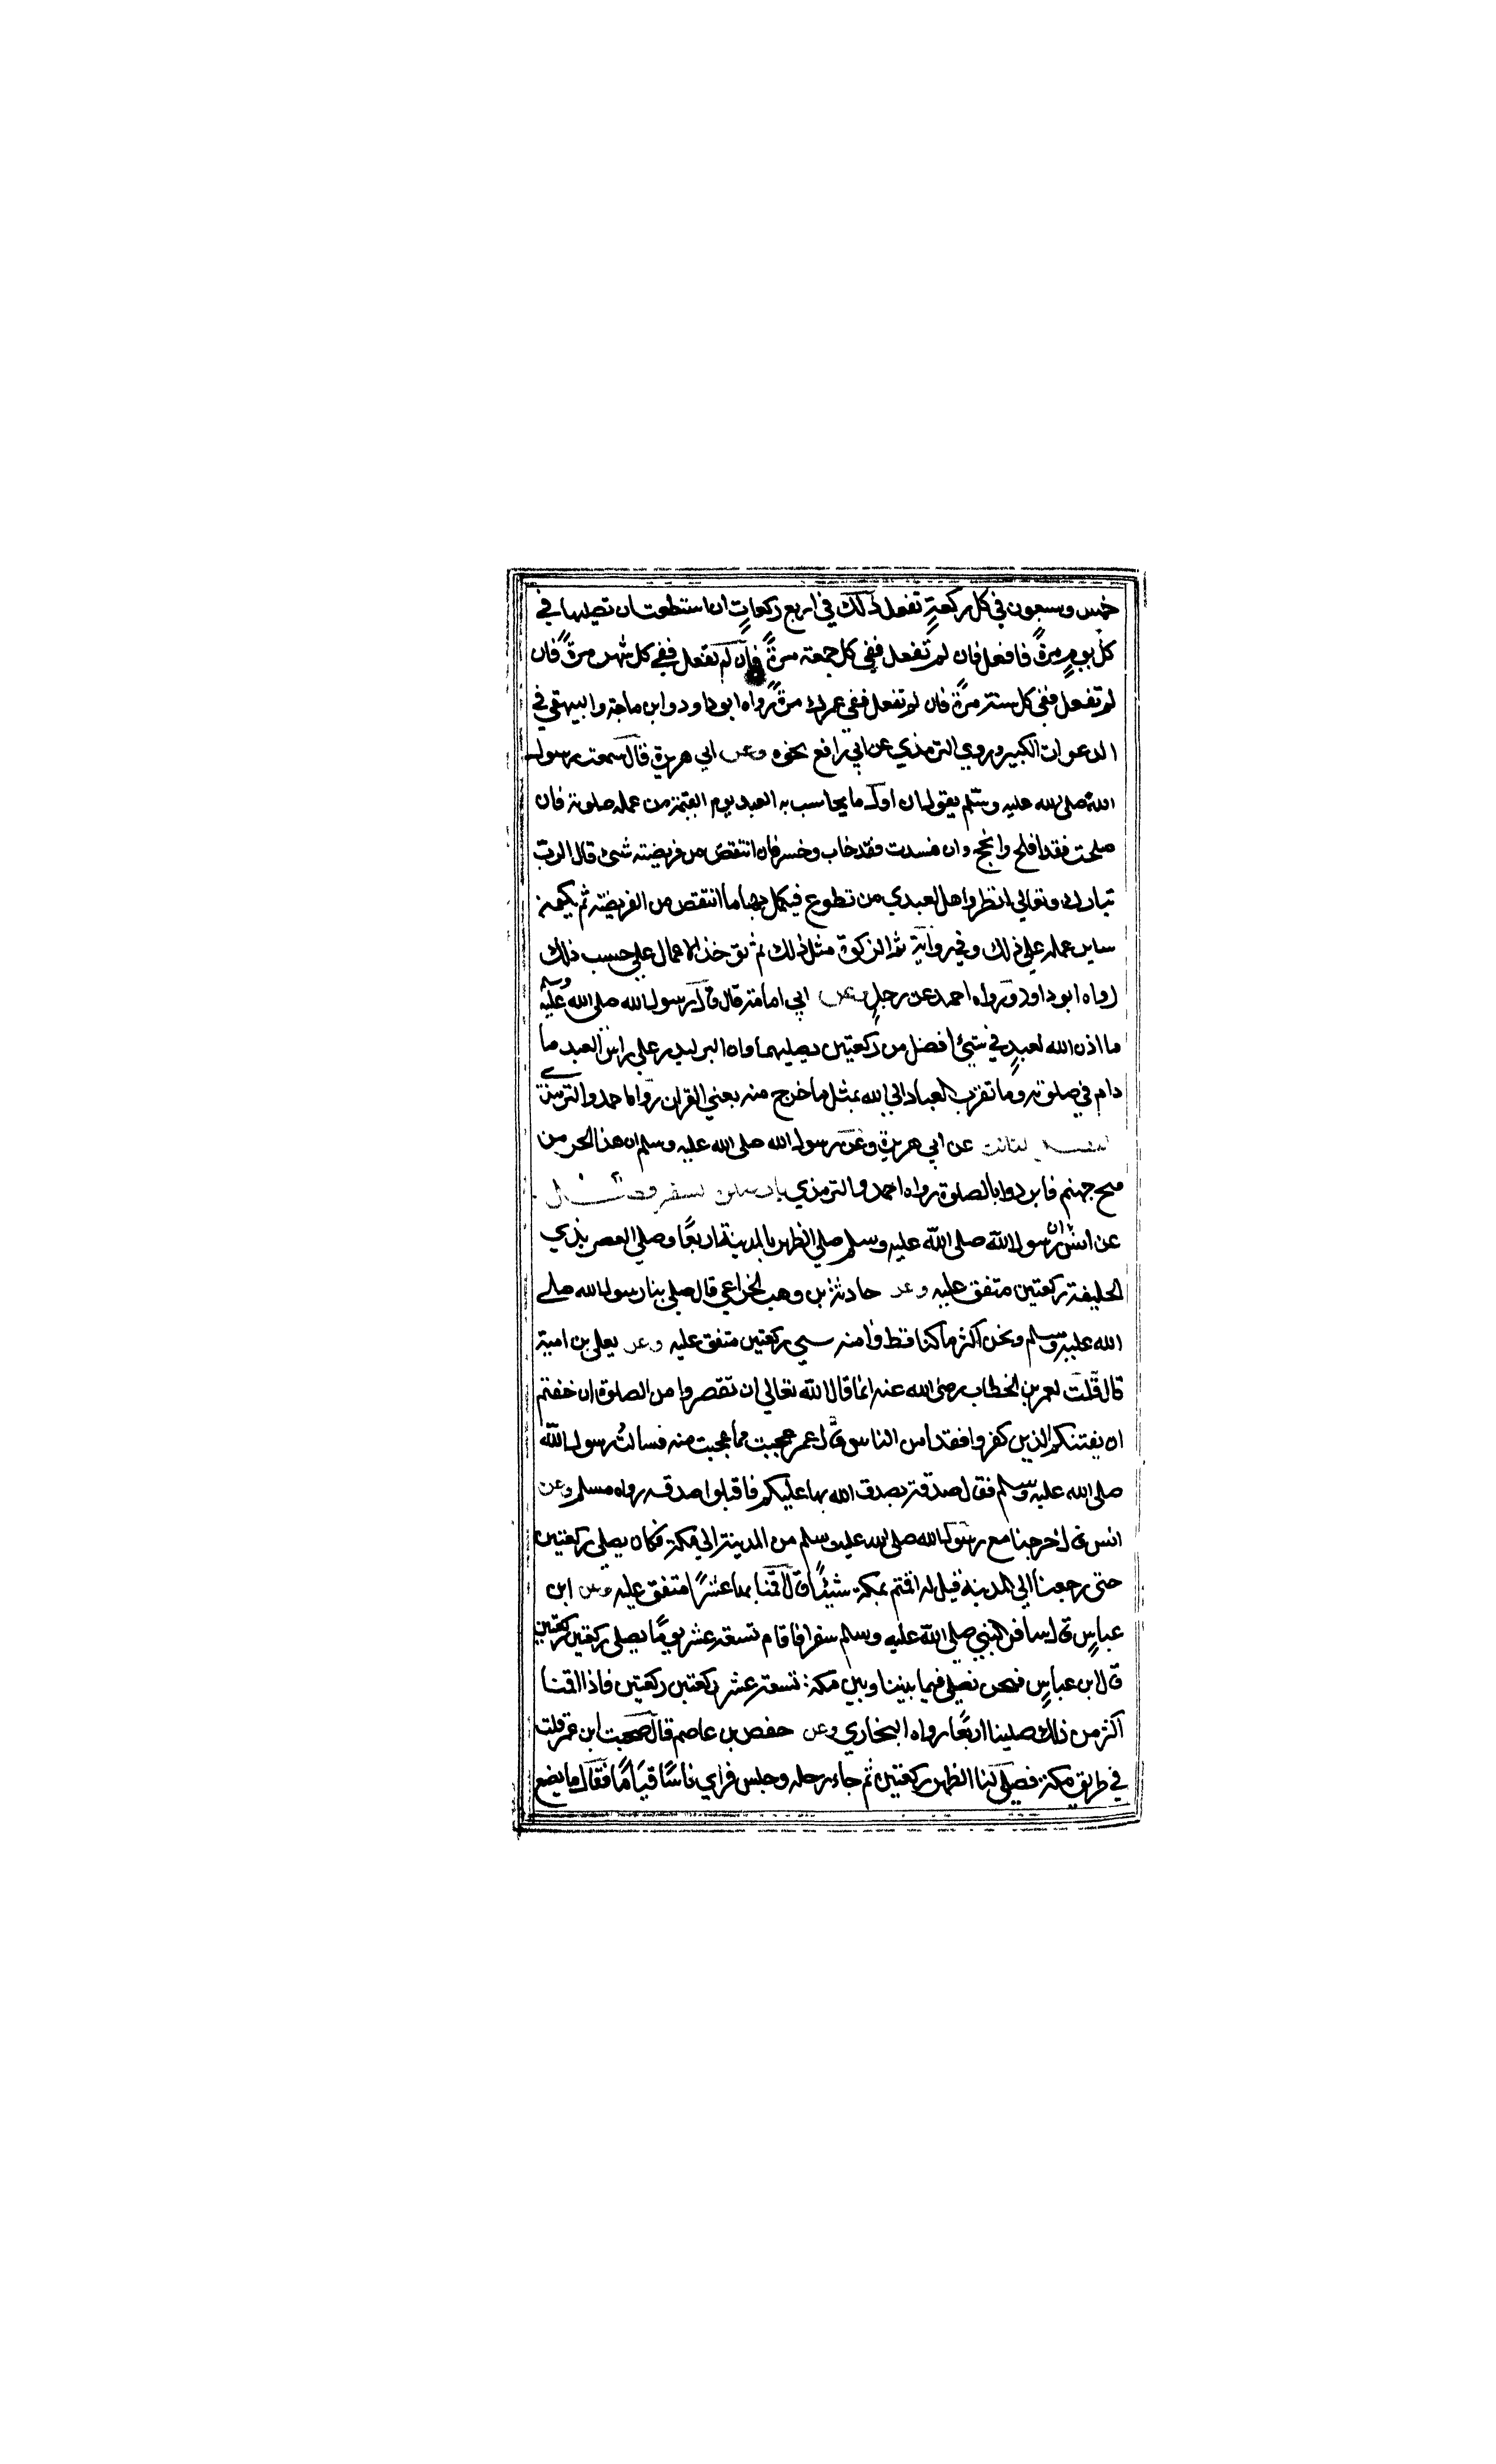 خمس وسبعون في كل ركعةٍ تفعل ذلك في اربع ركعاتٍ ان استطعت ان تصليها في
كل يومٍ مرةً فافعل فان لم تفعل ففي كل جمعة مرةً فان لم تفعل ففي كل شهر مرةً فان
لم تفعل ففي كل سنة مرةً فان لم تفعل ففي عمرك مرةً رواه ابو داود وابن ماجة والبيهقي في
الدعوات الكبير وروي الترمذي عن ابي رافع نحوه وعن ابي هريرة قال سمعت رسول
الله صلى الله عليه وسلم يقول ان اول ما يحاسب به العبد يوم القيمة من عمله صلوته فان
صلحت فقد افلح وانجح وان فسدت فقد خاب وخسر فان انتقص من فريضته شئ قال الرب
تبارك وتعالي انظروا هل لعبدي من تطوع فيكمل بها ما انتقص من الفريضة ثم يكون
ساير عمله علي ذلك وفي رواية ثم الزكوة مثل ذلك ثم توخذ الاعمال علي حسب ذلك
رواه ابو داود ورواه احمد عن رجلٍ وعن ابي امامة قال قال رسول الله صلى الله عليه وسلم
ما اذن الله لعبدٍ في شيئ افضل من ركعتين يصليهما وان البر ليدر علي راس العبد ما
دام في صلوته وما تقرب العباد الي الله بمثل ما خرج منه يعني القران رواه احمد والترمذي
عن ابي هريرة وعن رسول الله صلى الله عليه وسلم ان هذا الحر من
فيح جهنم فابردوا بالصلوة رواه احمد والترمذي باب صلوة السفر
عن انس ان رسول الله صلى الله عليه وسلم صلي الظهر بالمدينة اربعًا وصلي العصر بذي
الحليفة ركعتين متفق عليه وعن حارثة بن وهب الخزاعي قال صلي بنا رسول الله صلي
الله عليه وسلم ونحن اكثر ما كنا قط وامنه ركعتين متفق عليه وعن يعلي بن امية
قال قلت لعمر بن الخطاب رضى الله عنه انما قال الله تعالي ان تقصروا من الصلوة ان خفتم
ان يفتنكم الذين كفروا فقد امن الناس قال عمر عجبت مما عجبت منه فسالتُ رسول الله
صلى الله عليه وسلم فقال صدقة تصدق الله بها عليكم فاقبلوا صدقته رواه مسلم وعن
انس قال خرجنا مع رسول الله صلى الله عليه وسلم من المدينة الي مكة فكان يصلي ركعتين
حتى رجعنا الي المدينة قيل له اقمتم بمكة شيئًا قال اقمنا بها عشرًا متفق عليه وعن ابن
عباسٍ قال سافر النبي صلي الله عليه وسلم سفرا فاقام تسعة عشر يومًا يصلي ركعتين ركعتين
قال ابن عباسٍ فنحن نصلي فيما بيننا وبين مكة تسعة عشر ركعتين ركعتين فاذا اقمنا
اكثر من ذلك صلينا اربعًا رواه البخاري وعن حفص بن عاصم قال صحبت ابن عمر قلت
في طريق مكة فصلي لنا الظهر ركعتين ثم جاء رحله وجلس فراي ناسًا قيامًا فقال ما يصنع